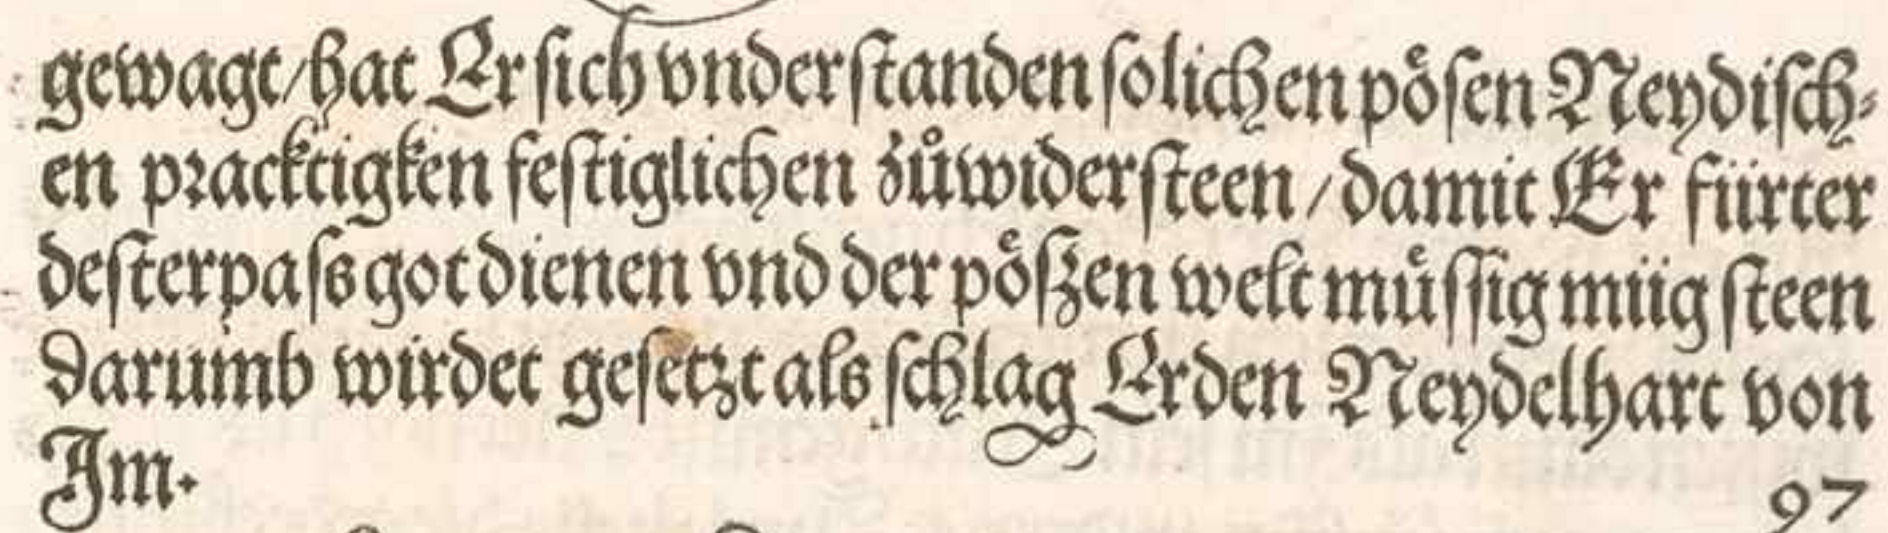 gewagt/hat Er sich vnderstanden solichen pöſen Neydiſch⸗
en pracktigken feſtiglichen zůwiderſteen/damit Er fürter
deſterpaſs got dienen vnd der pöſzen welt müſſig müig ſteen
Darumb wirdet geſetzt als ſchlag Er den Neydelhart von
Im.
97